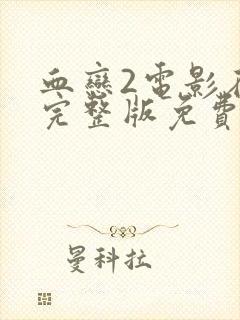 血戀2電影在
完整版免費
曼科拉